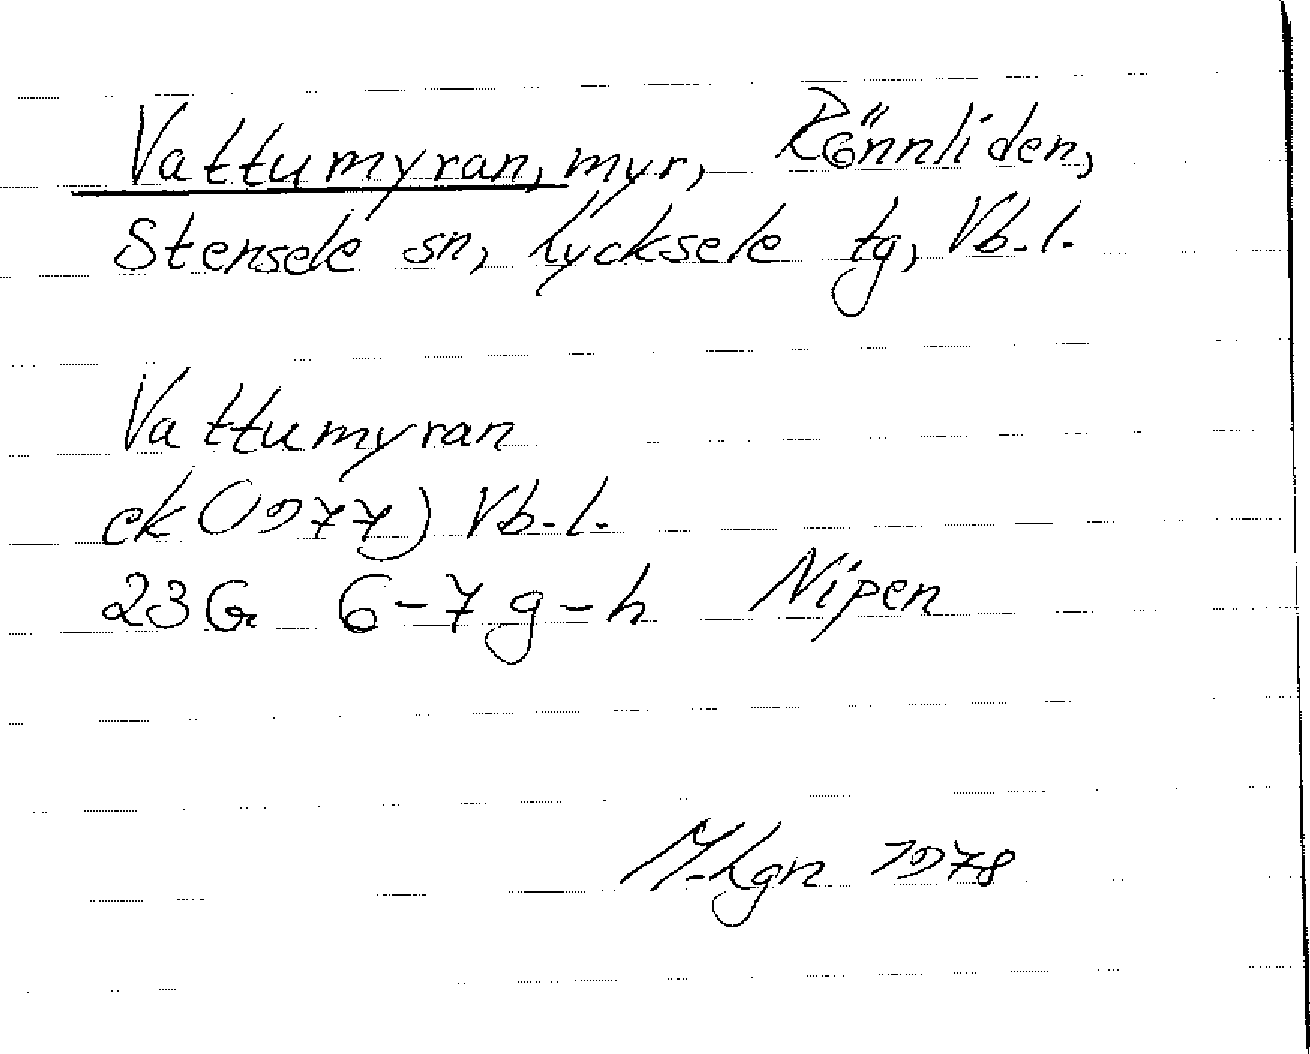 Vattumyran, myr, Rönnliden,
Stensele sn, Lycksele tg, Vb. l.
Vattumyran
ek (1977) Vb. l.
23G 6-7 g-h Nipen
M. Lgn 1978